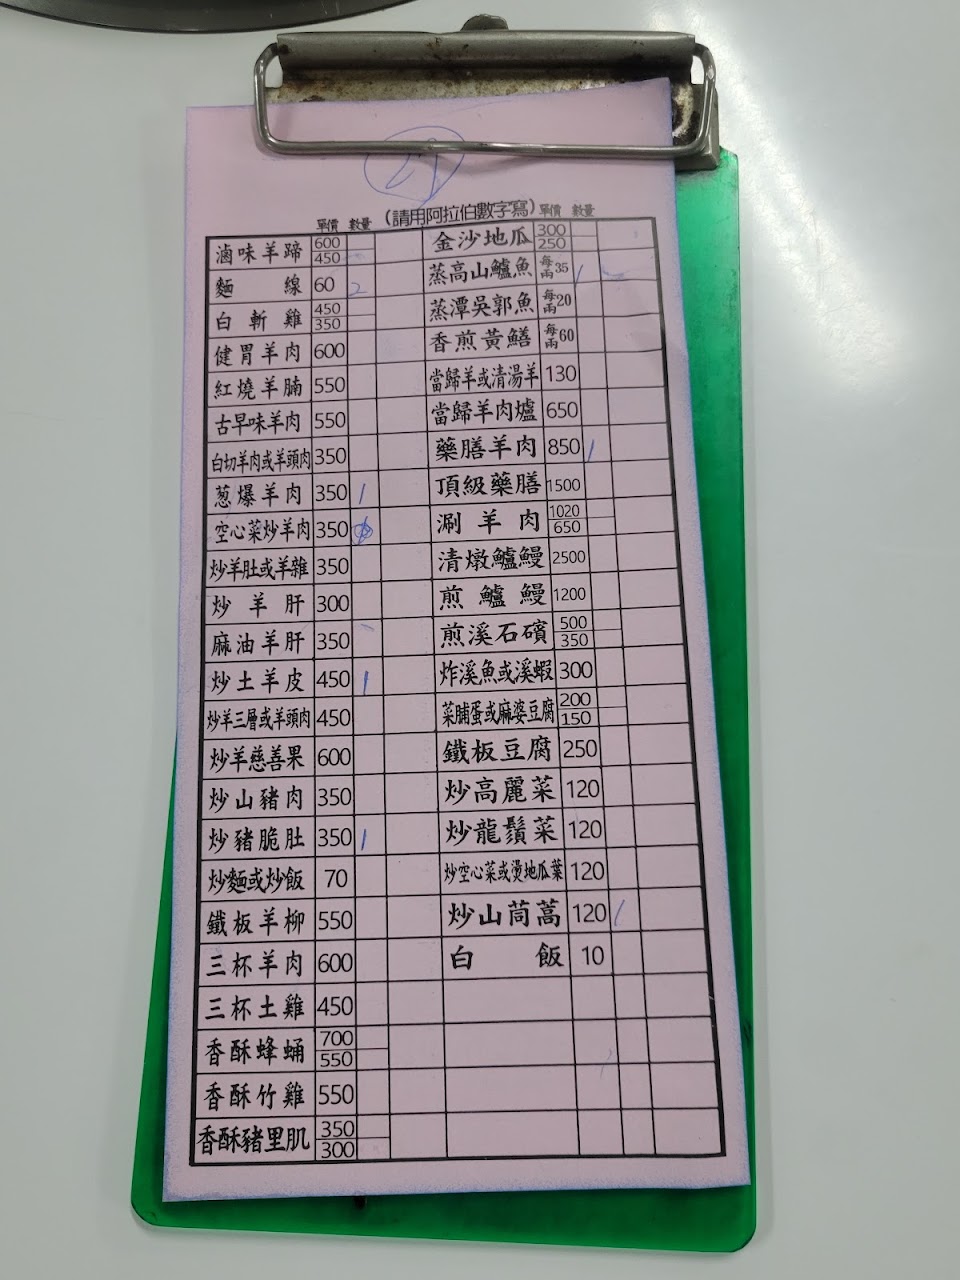 (請用阿拉伯數字寫)
單價 數量
滷味羊蹄 600 450
麵線 60 2
白斬雞 450 350
健胃羊肉 600
紅燒羊腩 550
古早味羊肉 550
白切羊肉或羊頭肉 350
葱爆羊肉 350 1
空心菜炒羊肉 350
炒羊肚或羊雜 350
炒羊肝 300
麻油羊肝 350
炒土羊皮 450 1
炒羊三層或羊頭肉 450
炒羊慈善果 600
炒山豬肉 350
炒豬脆肚 350 1
炒麵或炒飯 70
鐵板羊柳 550
三杯羊肉 600
三杯土雞 450
香酥蜂蛹 700 550
香酥竹雞 550
香酥豬里肌 350 300
單價 數量
金沙地瓜 300 250
蒸高山鱸魚 每兩35 1
蒸潭吳郭魚 每兩20
香煎黃鱔 每兩60
當歸羊或清湯羊 130
當歸羊肉爐 650
藥膳羊肉 850 1
頂級藥膳 1500
涮羊肉 1020 650
清燉鱸鰻 2500
煎鱸鰻 1200
煎溪石礦 500 350
炸溪魚或溪蝦 300
菜脯蛋或麻婆豆腐 200 150
鐵板豆腐 250
炒高麗菜 120
炒龍鬚菜 120
炒空心菜或燙地瓜葉 120
炒山茼蒿 120 1
白飯 10